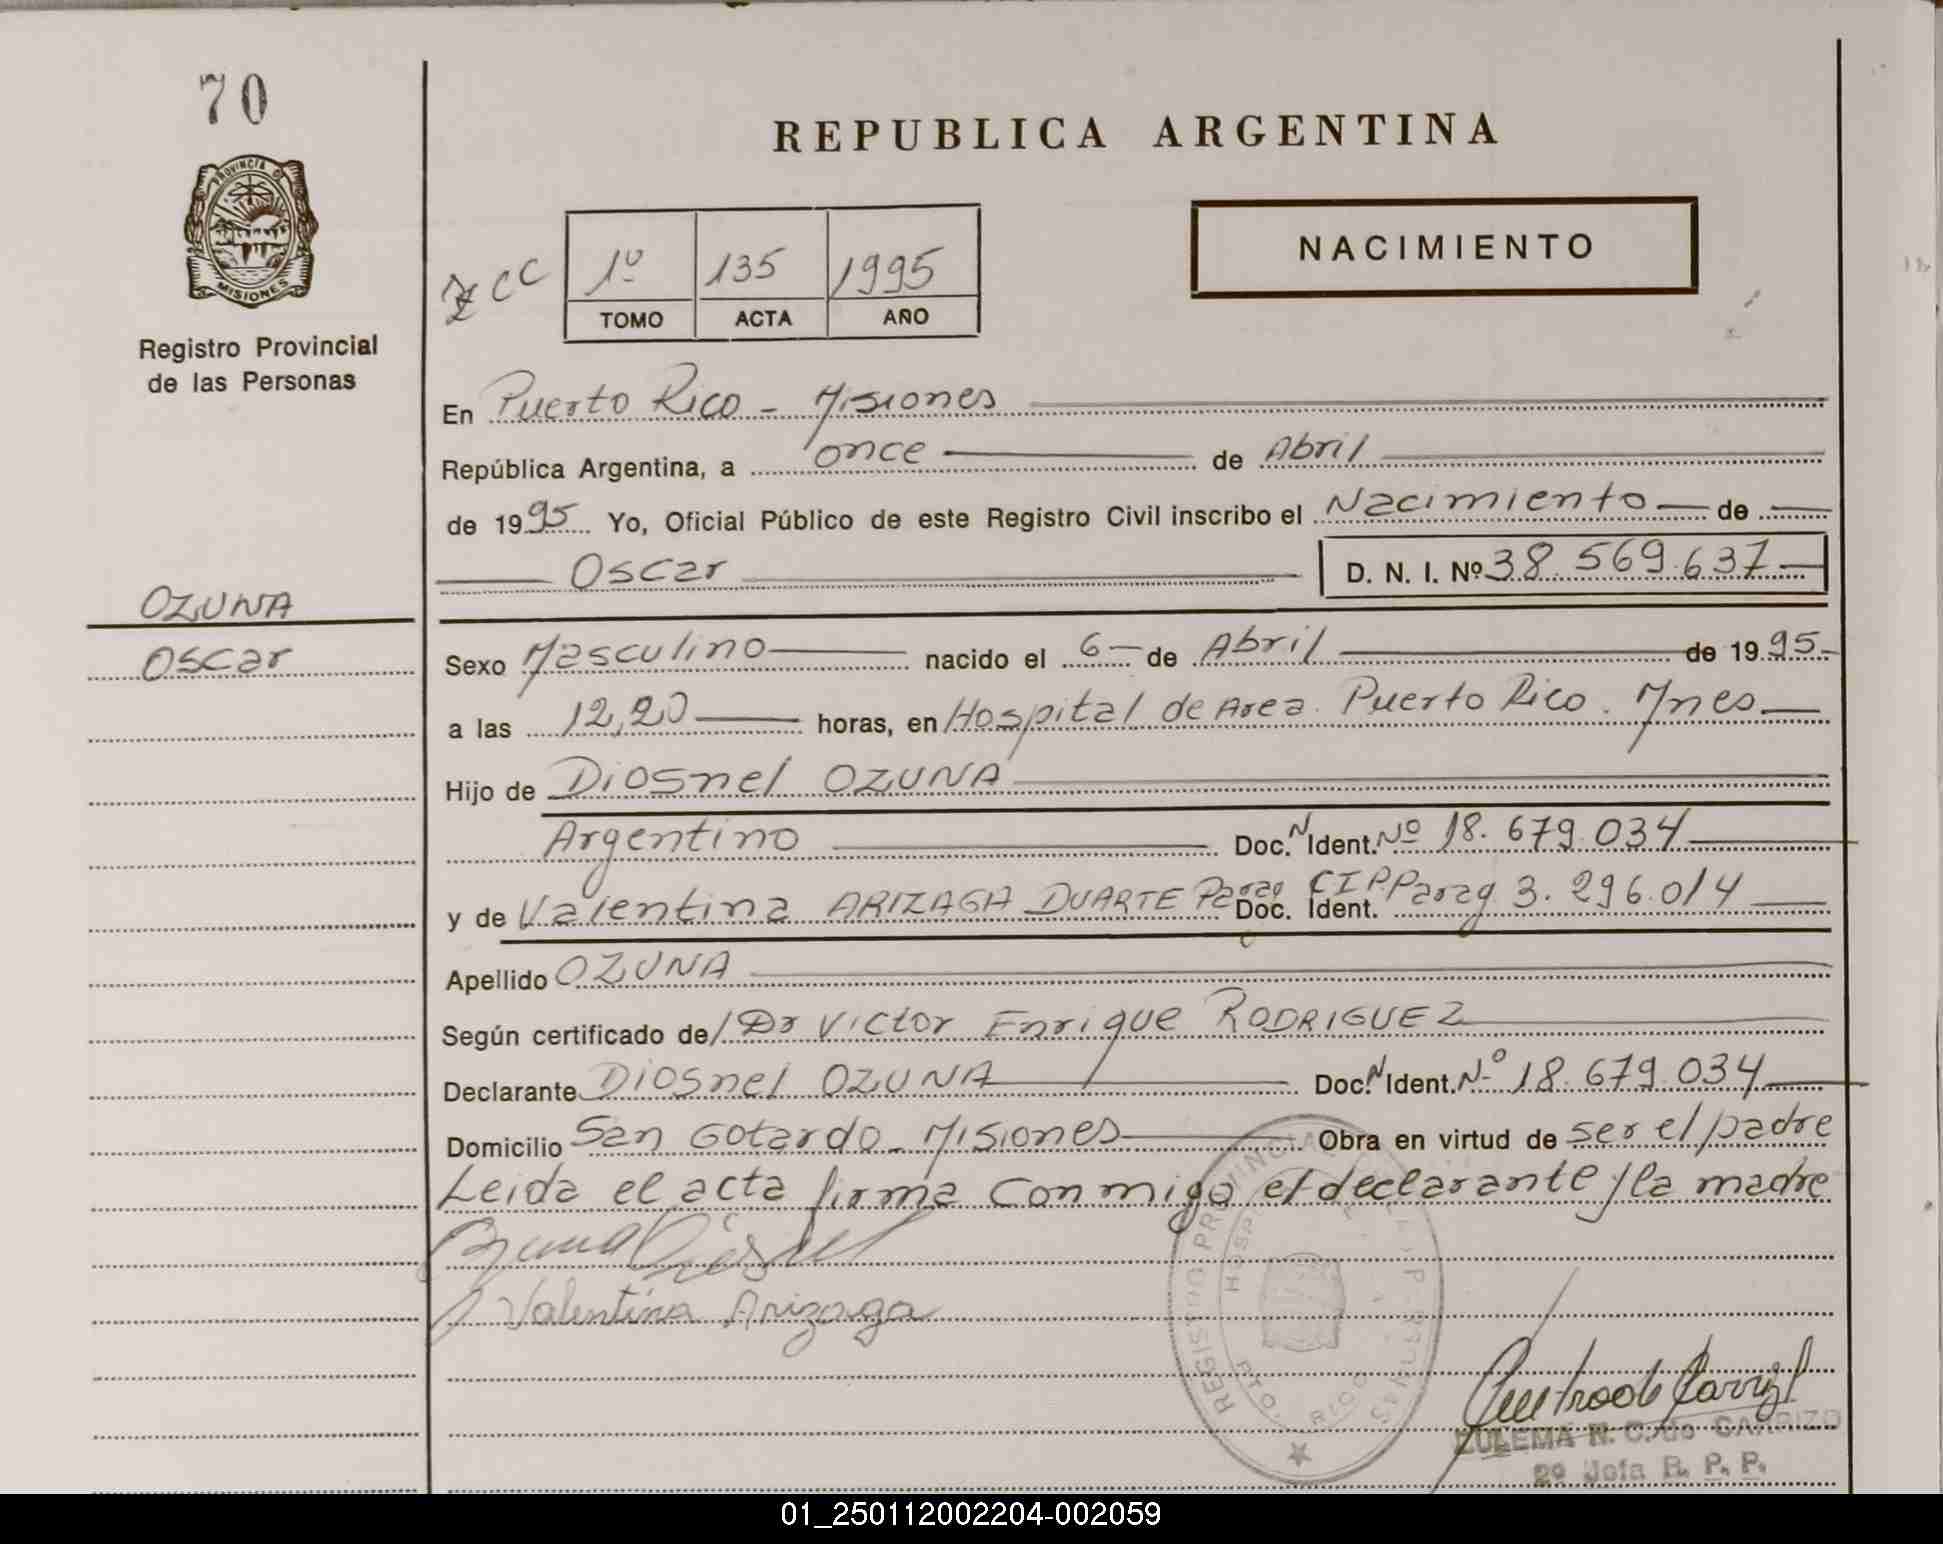 70
REPUBLICA ARGENTINA
PROVINCIA DE
MISIONES
Registro Provincial
de las Personas
CC
1º 135 1995
TOMO ACTA AÑO
NACIMIENTO
En Puerto Rico - Misiones
República Argentina, a once de Abril
de 1995 Yo, Oficial Público de este Registro Civil inscribo el Nacimiento de
Oscar D. N. I. Nº 38.569.637
OZUNA
Oscar
Sexo Masculino nacido el 6 de Abril de 1995
a las 12,20 horas, en Hospital de Area. Puerto Rico. Mnes
Hijo de Diosnel OZUNA
Argentino Doc. N Ident. Nº 18.679.034
y de Valentina ARIZAGA DUARTE Parag Doc. Ident. CIPParag 3.296.014
Apellido OZUNA
Según certificado de/ Dr Victor Enrique RODRIGUEZ
Declarante Diosnel OZUNA Doc. N Ident. Nº 18.679.034
Domicilio San Gotardo - Misiones Obra en virtud de ser el padre
Leida el acta firma conmigo el declarante y la madre
Valentina Arizaga
REGISTRO PROVINCIAL DE LAS PERSONAS
PTO. RICO
ZULEMA N. C. de CARRIZO
2º Jefa R. P. P.
01_250112002204-002059